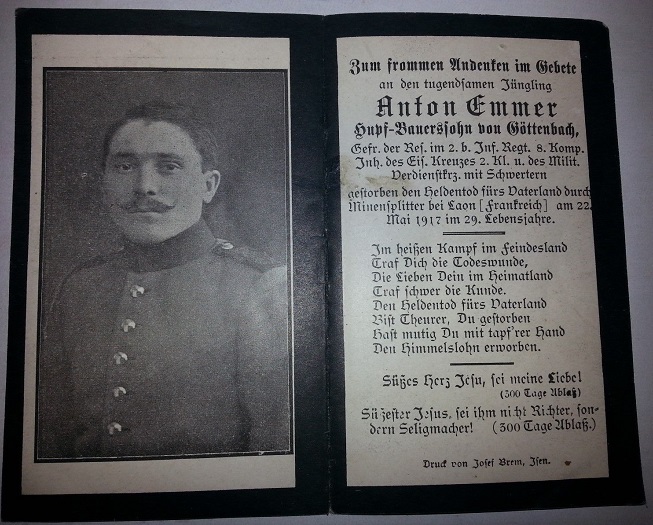 Zum frommen Andenken im Gebete
an den tugendsamen Jüngling
Anton Emmer
Hupf-Bauerssohn von Göttenbach,
Gefr. der Res. im 2. b. Inf. Regt. 8. Komp.
Inh. des Eis. Kreuzes 2. Kl. u. des Milit.
Verdienstkrz. mit Schwertern
gestorben den Heldentod fürs Vaterland durch
Minensplitter bei Laon [Frankreich] am 22.
Mai 1917 im 29. Lebensjahre.
Im heißen Kampf im Feindesland
Traf Dich die Todeswunde,
Die Lieben Dein im Heimatland
Traf schwer die Kunde.
Den Heldentod fürs Vaterland
Bist Theurer, Du gestorben
Hast mutig Du mit tapf'rer Hand
Den Himmelslohn erworben.
Süßes Herz Jesu, sei meine Liebe!
(300 Tage Ablaß)
Süßester Jesus, sei ihm nicht Richter, son-
dern Seligmacher! (300 Tage Ablaß.)
Druck von Josef Brem, Isen.